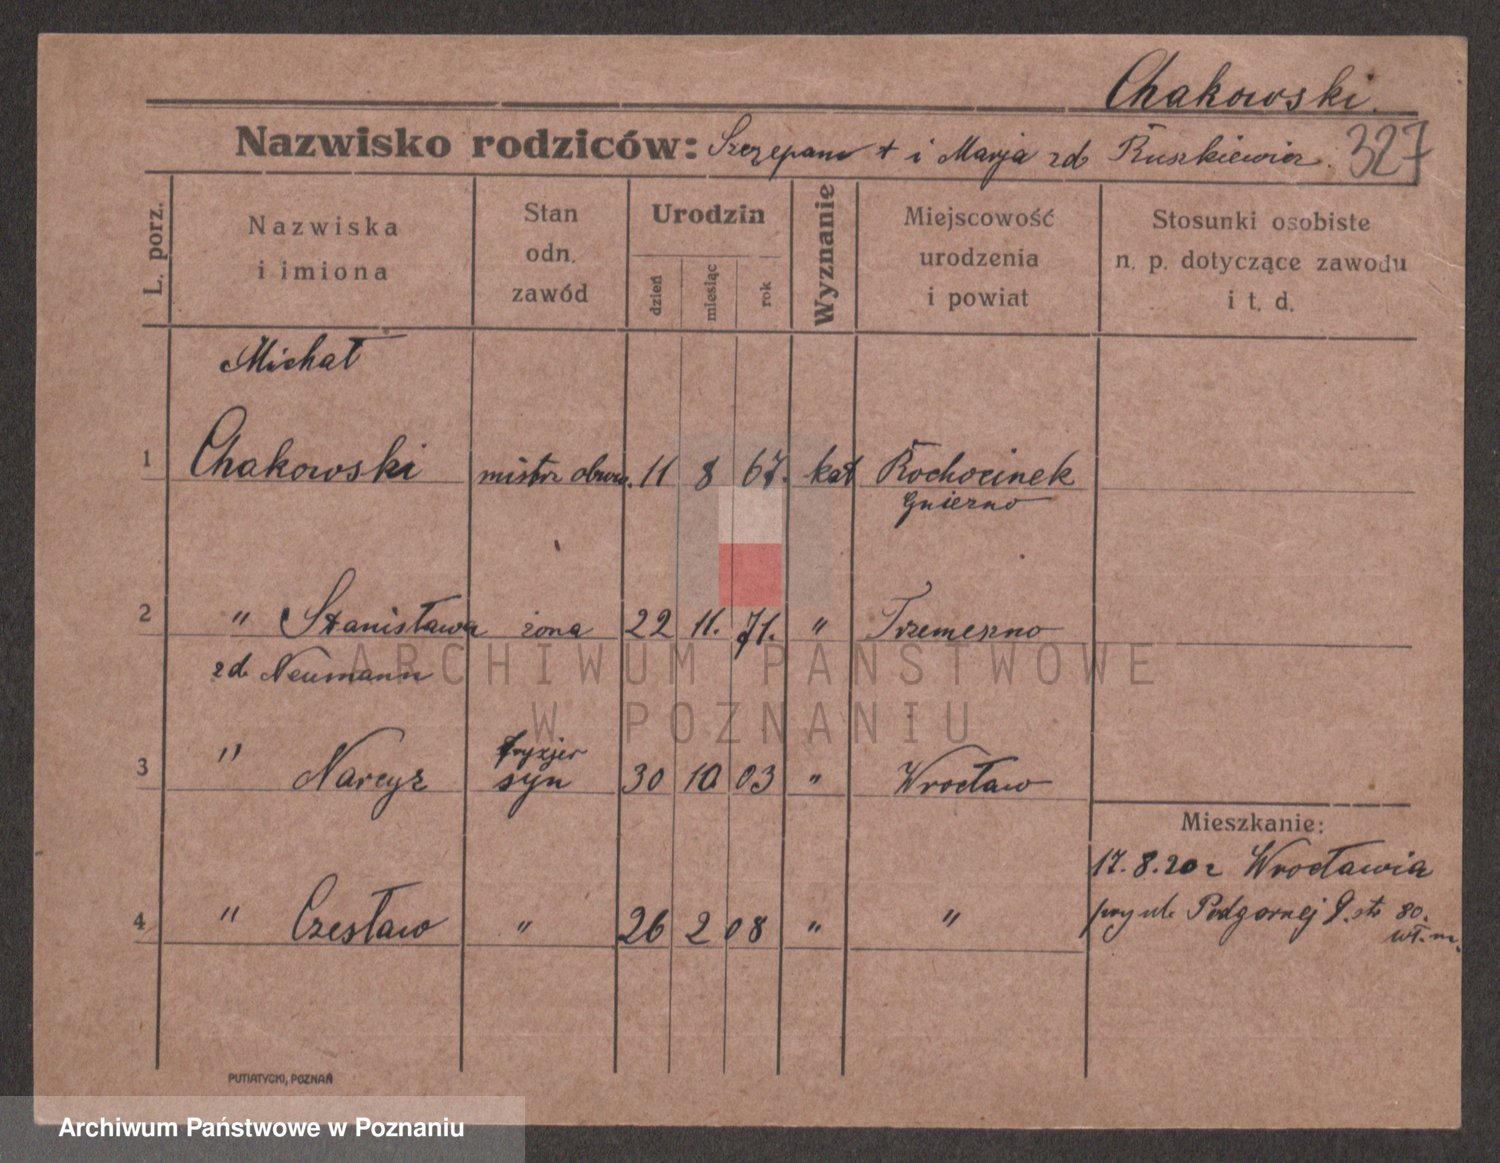 Chakowski.
Nazwisko rodziców: Szczepan + i Marja zd Ruszkiewicz. 327
L. porz.
Nazwiska
i imiona
Stan
odn.
zawód
Urodzin
dzień
miesiąc
rok
Wyznanie
Miejscowość
urodzenia
i powiat
Stosunki osobiste
n. p. dotyczące zawodu
i t. d.
Michał
1 Chakowski mistrz obuw. 11 8 67. kat Rochocinek
Gniezno
2 " Stanisława żona 22 11. 71. " Trzemeszno
zd. Neumann
ARCHIWUM PAŃSTWOWE
W POZNANIU
fryzjer
3 " Narcyz syn 30 10 03 " Wrocław
Mieszkanie:
17.8.20 z Wrocławia
przy ul. Podgornej 80.
wł. m.
4 " Czesław " 26 2 08 " "
PUTIATYCKI, POZNAŃ
Archiwum Państwowe w Poznaniu